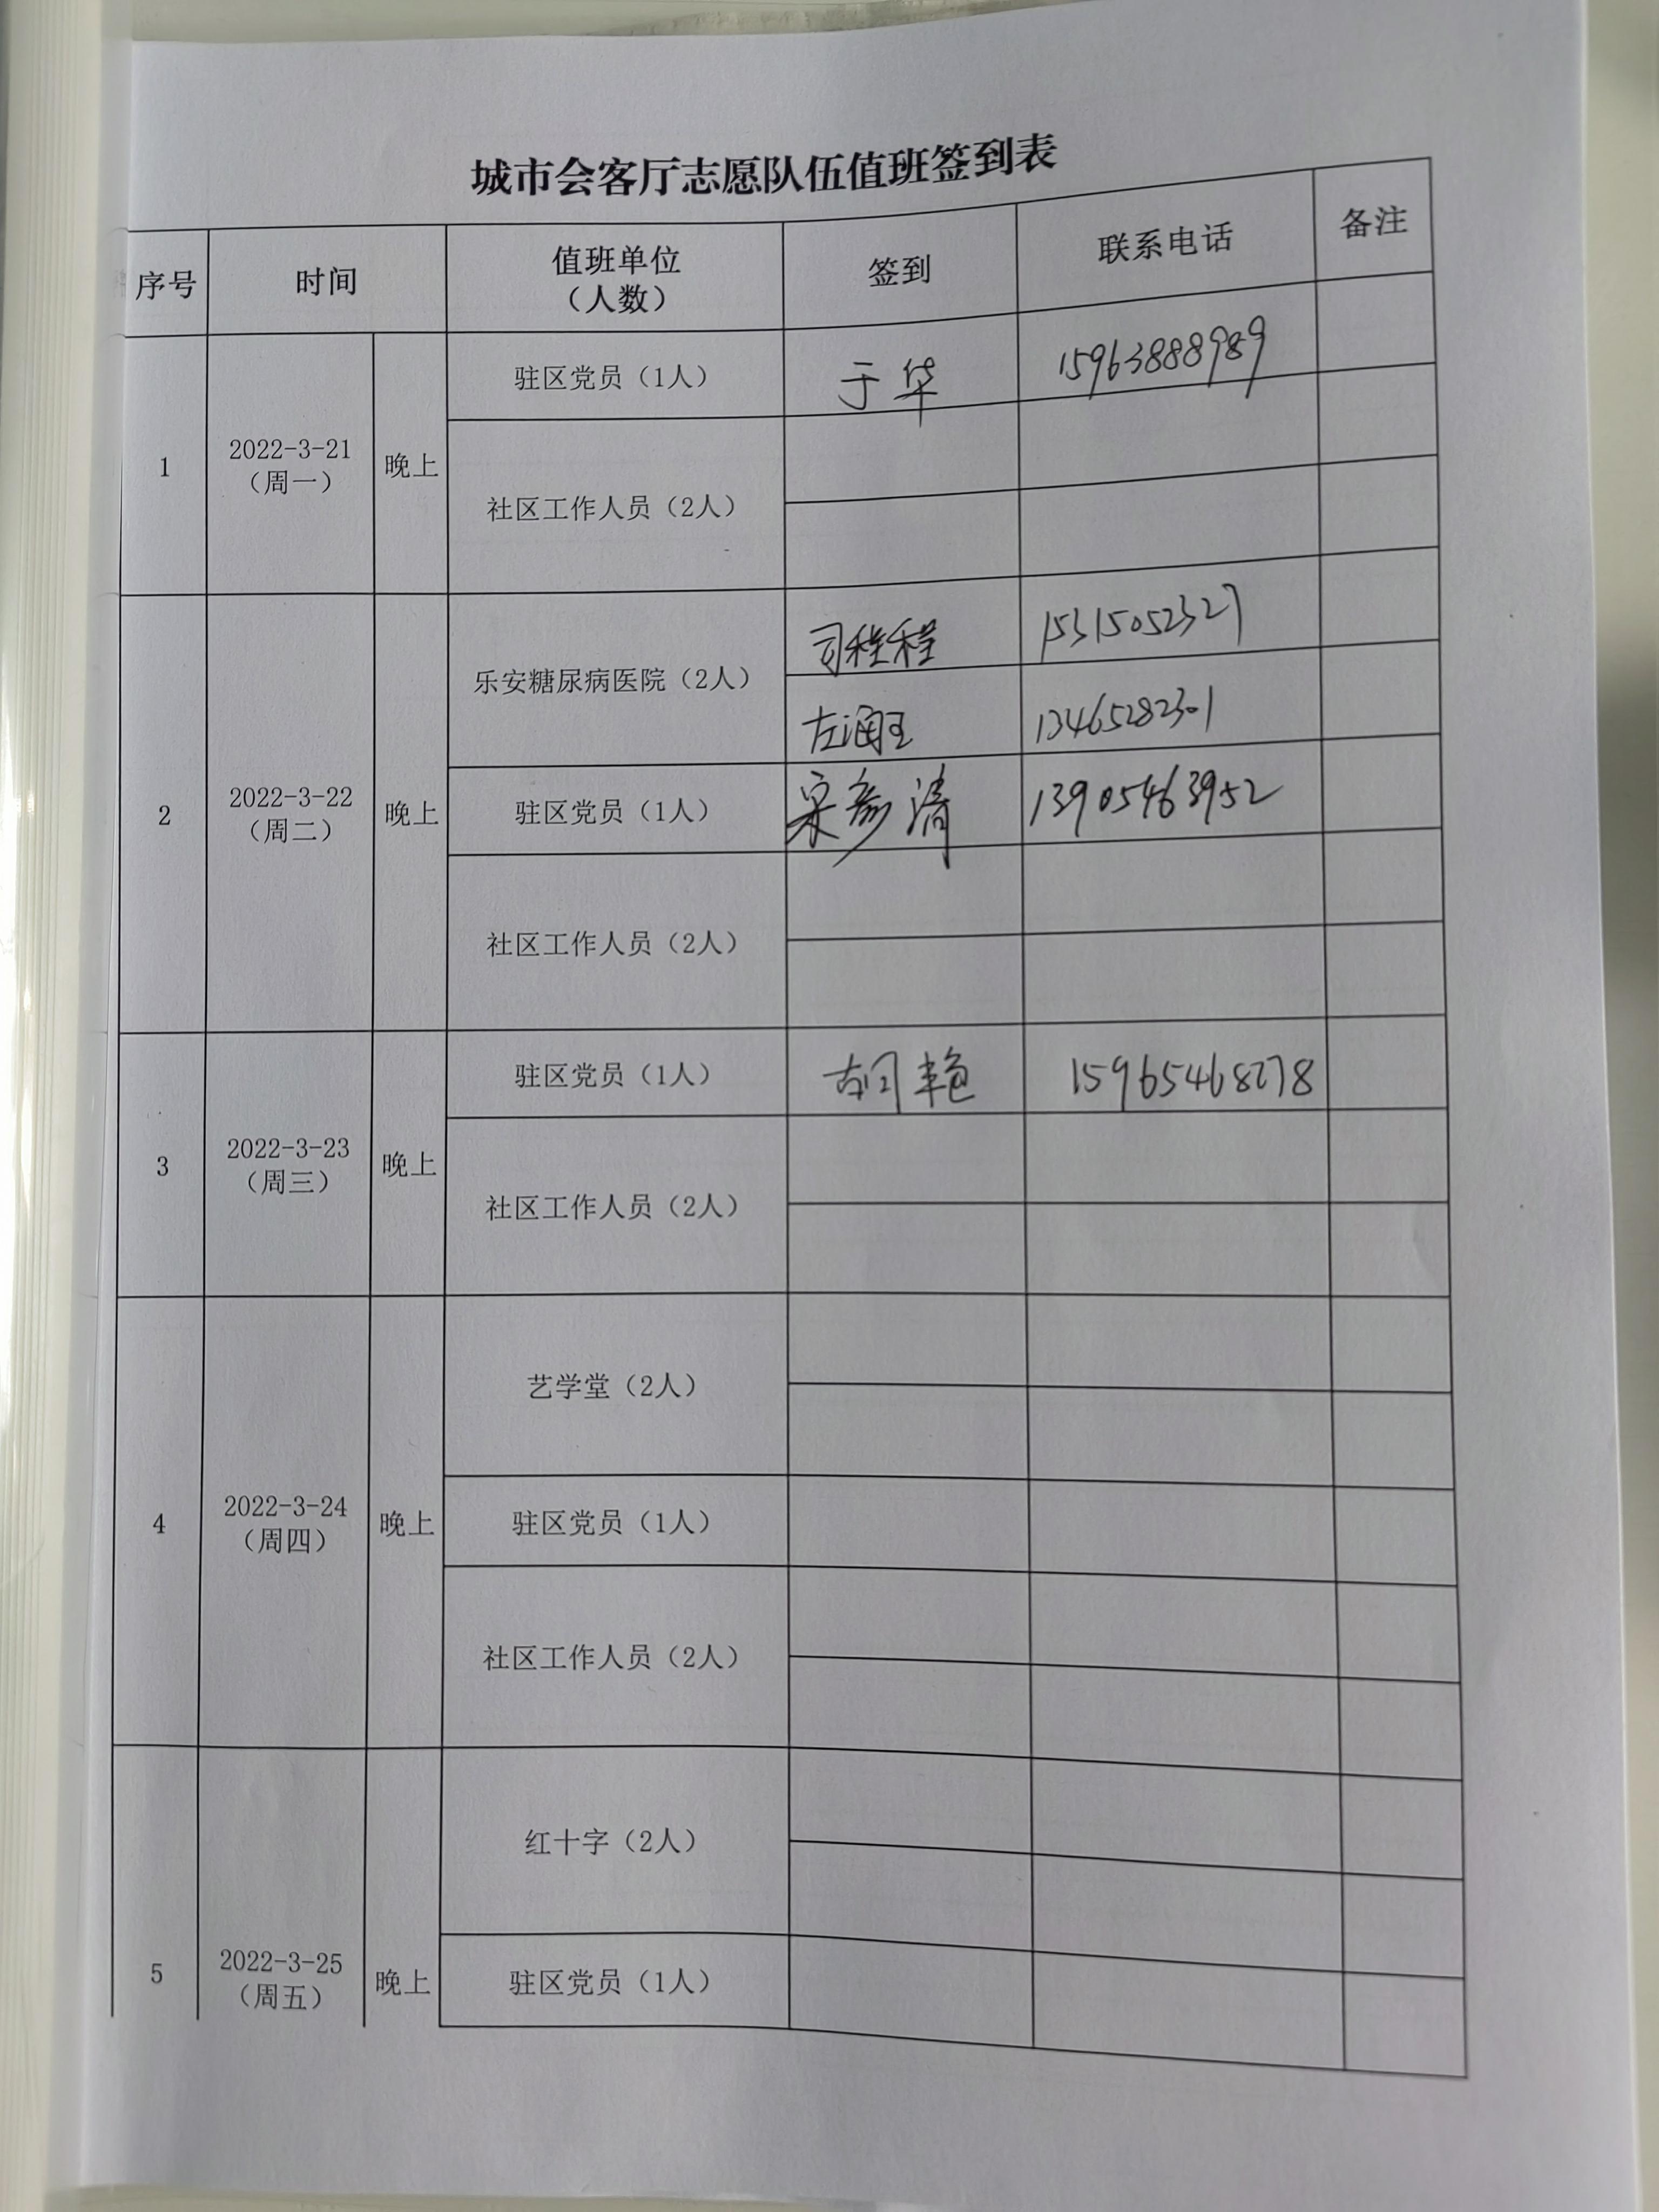 城市会客厅志愿队伍值班签到表
序号 时间 值班单位（人数） 签到 联系电话 备注
1 2022-3-21（周一） 晚上
驻区党员（1人） 于华 15963888989
社区工作人员（2人）
2 2022-3-22（周二） 晚上
乐安糖尿病医院（2人） 司程程 15315052327
左润玉 13465282301
驻区党员（1人） 宋彦清 13905463952
社区工作人员（2人）
3 2022-3-23（周三） 晚上
驻区党员（1人） 胡艳 15965468278
社区工作人员（2人）
4 2022-3-24（周四） 晚上
艺学堂（2人）
驻区党员（1人）
社区工作人员（2人）
5 2022-3-25（周五） 晚上
红十字（2人）
驻区党员（1人）